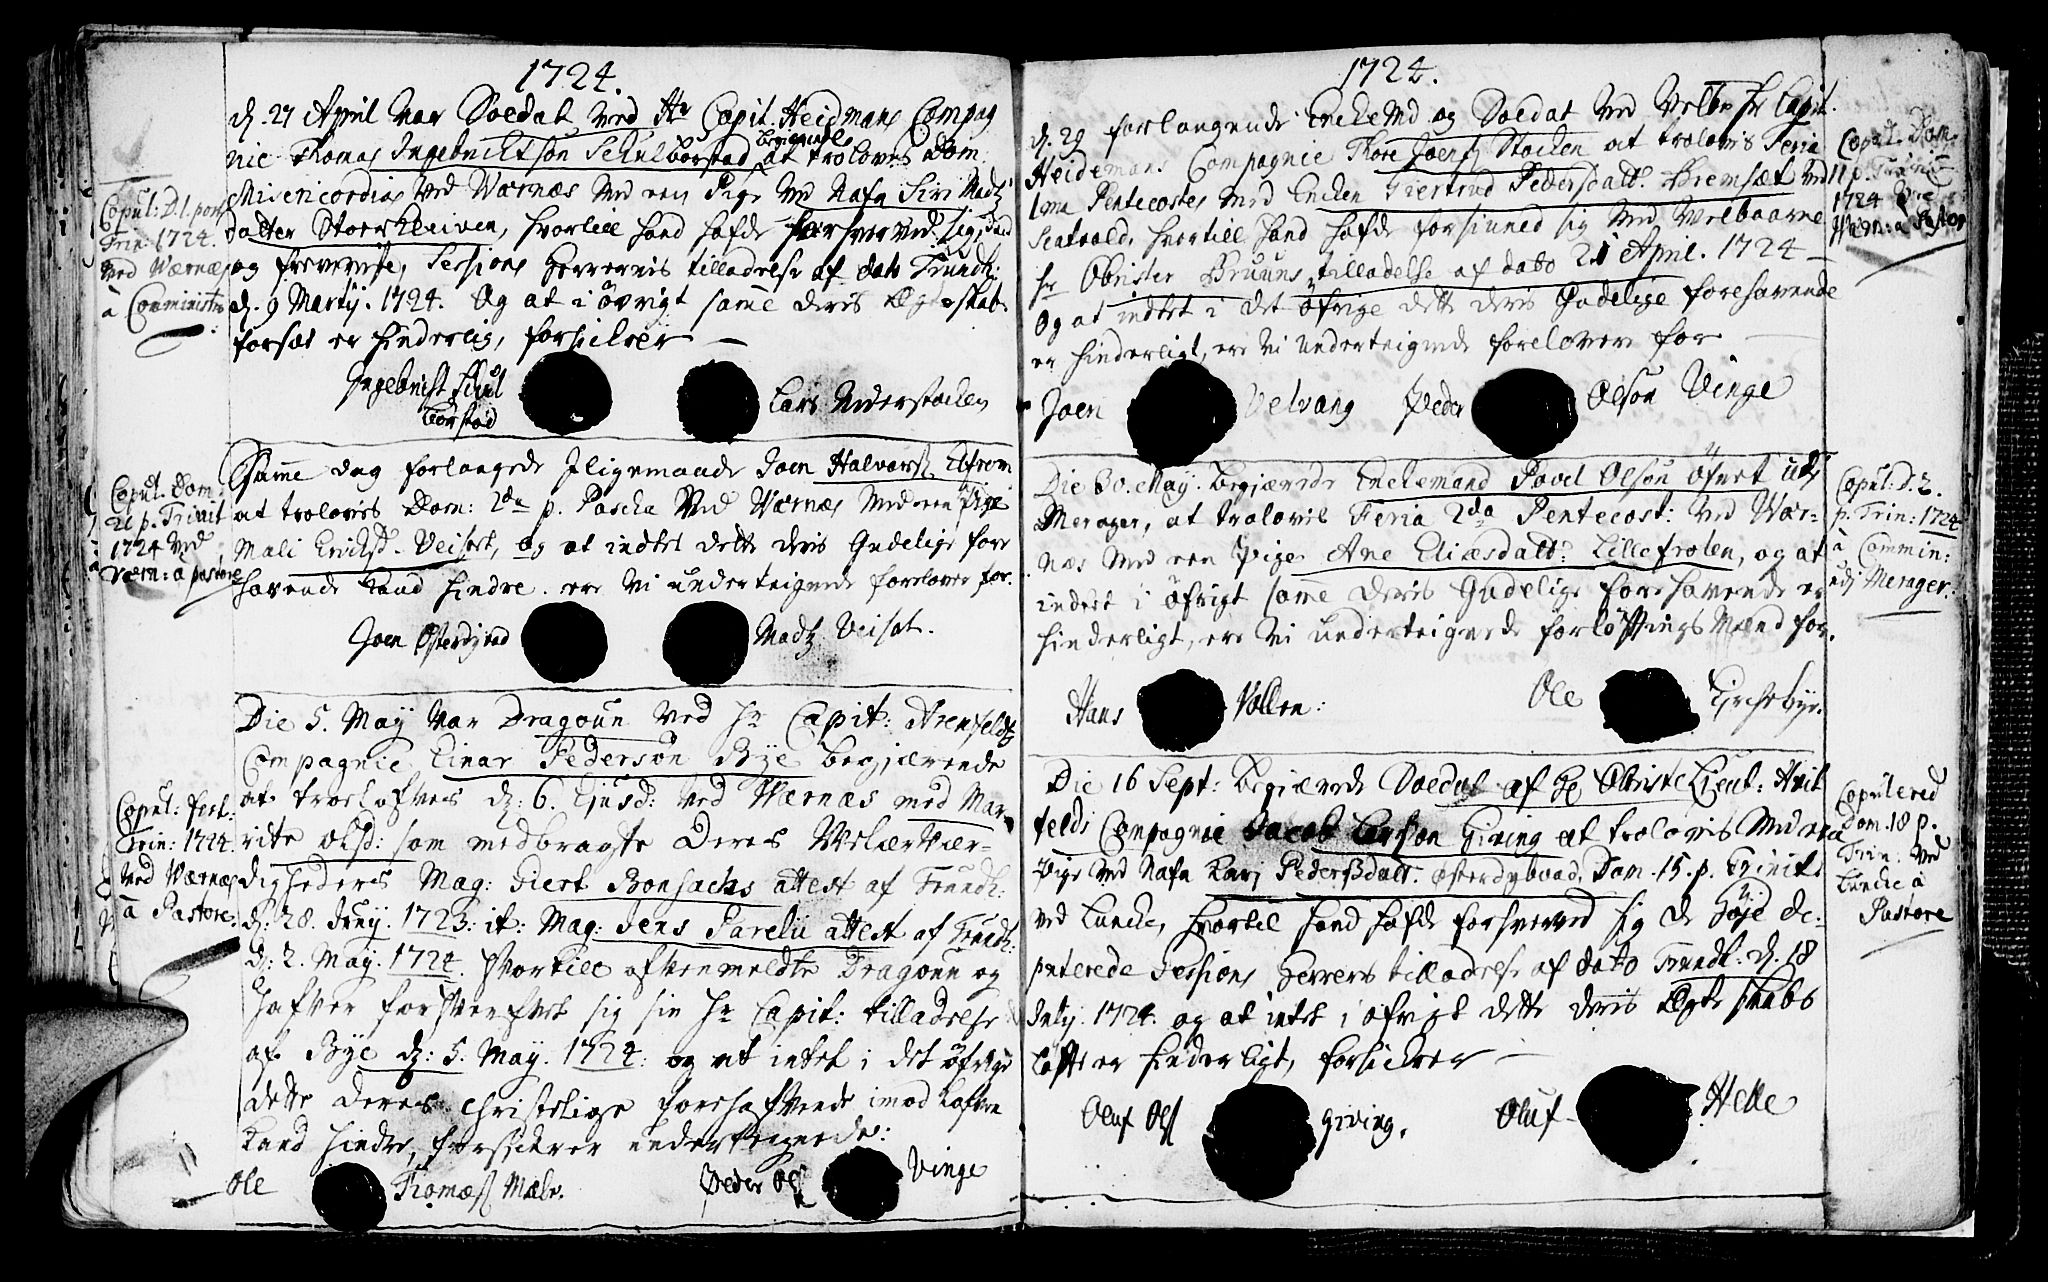 1724.
d. 27 April var Soldat ved Hr Capit. Heidmans Compag
nie Thomas Ingebrichtson Schulbørstad begierende at troloves Dom:
Misericordias ved Wærnæs med een Pige ved Nafn Siri Madz
datter Stoerkleiven, hvortill hand hafde forhvervet sig
og Sessions Herrernis tilladelse af dato Trundh:
d. 9 Martij. 1724. Og at i øvrigt samme deris Ægteskab.
forsæt er hinderlig, forsickrer
Ingebricht Schul
børstad
Lars Næderstocken
Copul: D. 1. post
Trin: 1724.
ved Wærnæs
à Comministro
Samme dag forlangede Jligemaade Joen Halvors: Elfrom
at trolovis Dom: 2da p. Pascha ved Wærnæs med een Pige
Mali Ericksd. Veiset, og at indtet dette deris Gudelige fore
havende kand hindre. ere vi underteignede forelover for.
Joen Østerdystad
Madz Veiset.
Copul. Dom.
21 p. Trinit
1724 ved
Værn: a pastore
Die 5. May var Dragoun ved Hr Capit: Arenfeldtz
Compagnie Einar Pedersøn Bye begierende
at troelofves d: 6. Ejusd: ved Wærnæs med Mar-
rite Olsd: som medbragte Deres Velærvær-
digheders Mag: Giert Bonsachs attest af Trundh:
d: 28. Junij. 1723: it: Mag: Jens Parelii attest af Trundh:
d: 2. May. 1724. Hvortill ofvenmeldte Dragoun og
hafver forhverfvet sig sin Hr Capit: tilladelse
af Bye d: 5. May. 1724: og at intet i det øfrige
dette deres christelige forehafvende imod Lofven
kand hindre, forsickrer underteignede:
Ole Thomæs: Mæle.
Peder Ols: Vinge
Copul: fest:
Trin: 1724.
ved Wærnæs
à Pastore.
1724.
d. 29 forlangende Enckemd og Soldat ved Velbr Hr Capit.
Heidemans Compagnie Thore Joens: Stocken at trolovis Feria
1ma Pentecostes med Encken Giertrud Pedersdatt: Bremsæt ved
Seatvold, hvortill hand hafde forsiuned sig med Welbaarne
Hr Obrister Bruuns tilladelse af dato 21 April. 1724
Og at indtet i det øfrige dette deris Gudelige forehavende
er hinderligt, ere vi underteignede forelover for
Joen Velvang
Peder Olsøn Vinge
Copul. Dom.
11 p. Trinit
1724
Wærn: a Pastor
Die 30. May. begiærede Enckemand Povel Olsøn Øfvet udj
Merager, at trolovis Feria 2da Pentecost: ved Wær-
næs med een Pige Ane Eliæsdatt: Lillefloten, og at
indtet i øfrigt samme deris Gudelige forehavende er
hinderligt, ere vi underteignede forløftnings Mænd for.
Hans Vollen:
Ole Kirchebye.
Copul: D. 2.
p. Trin: 1724
à Commin:
udj Merager.
Die 16 Sept: begiærede Soldat af Hr Obriste Lieut: Hvit
felds Compagnie Jacob Larsøn Giving at trolovis med een
Pige ved Nafn Karj Pedersdatt. Østerdybvad, Dom. 15. p. Trinit:
ved Lancke, hvortil hand hafde forhverved sig de Høje de-
puterede Sessions Herrers tilladelse af dato Trundh: d. 18
July. 1724. og at intet i øfrigt dette deris Ægteskabs
Løfte er hinderligt, forsickrer
Oluf Ols: Giving.
Oluf Helle
Copulered
Dom. 18 p.
Trin: ved
Lancke à
Pastore